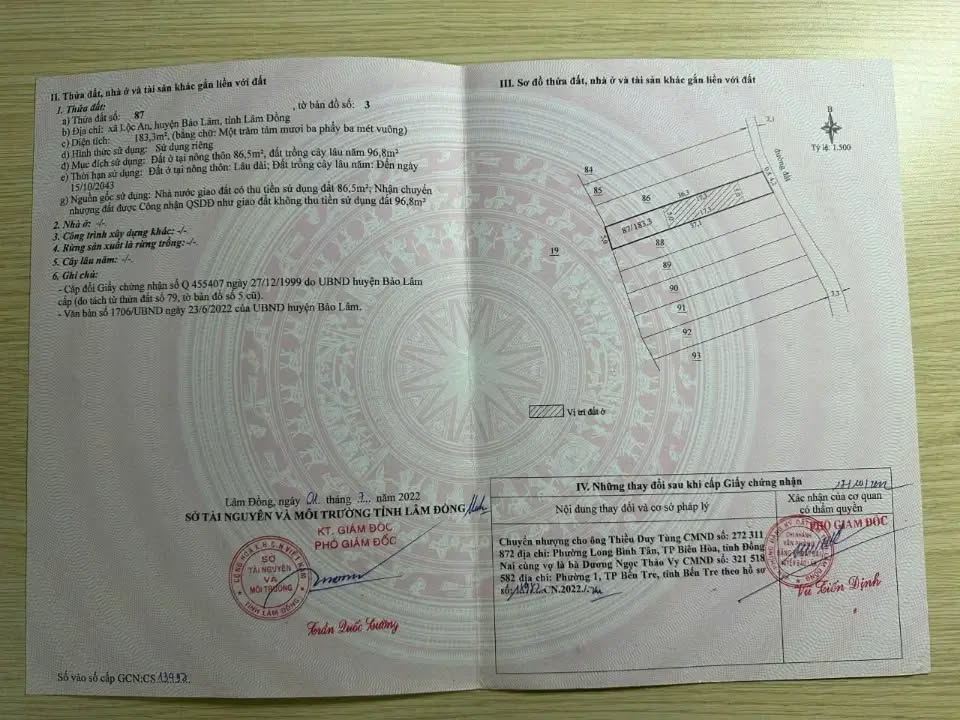 II. Thửa đất, nhà ở và tài sản khác gắn liền với đất
1. Thửa đất:
a) Thửa đất số: 87 , tờ bản đồ số: 3
b) Địa chỉ: xã Lộc An, huyện Bảo Lâm, tỉnh Lâm Đồng
c) Diện tích: 183,3m², (bằng chữ: Một trăm tám mươi ba phẩy ba mét vuông)
d) Hình thức sử dụng: Sử dụng riêng
đ) Mục đích sử dụng: Đất ở tại nông thôn 86,5m², đất trồng cây lâu năm 96,8m²
e) Thời hạn sử dụng: Đất ở tại nông thôn: Lâu dài; Đất trồng cây lâu năm: Đến ngày
15/10/2043
g) Nguồn gốc sử dụng: Nhà nước giao đất có thu tiền sử dụng đất 86,5m²; Nhận chuyển
nhượng đất được Công nhận QSDĐ như giao đất không thu tiền sử dụng đất 96,8m²
2. Nhà ở: -/-
3. Công trình xây dựng khác: -/-
4. Rừng sản xuất là rừng trồng:-/-.
5. Cây lâu năm: -/-
6. Ghi chú:
- Cấp đổi Giấy chứng nhận số Q 455407 ngày 27/12/1999 do UBND huyện Bảo Lâm
cấp (do tách từ thửa đất số 79, tờ bản đồ số 5 cũ).
- Văn bản số 1706/UBND ngày 23/6/2022 của UBND huyện Bảo Lâm.
Lâm Đồng, ngày 01 tháng 7 năm 2022
SỞ TÀI NGUYÊN VÀ MÔI TRƯỜNG TỈNH LÂM ĐỒNG
KT. GIÁM ĐỐC
PHÓ GIÁM ĐỐC
CỘNG HÒA X.H.C.N VIỆT NAM
SỞ
TÀI NGUYÊN
VÀ
MÔI TRƯỜNG
TỈNH LÂM ĐỒNG
Trần Quốc Cường
Số vào sổ cấp GCN:CS
III. Sơ đồ thửa đất, nhà ở và tài sản khác gắn liền với đất
B
Tỷ lệ 1:500
3,1
đường đất
84
85
86
16,3
87/183.3
17,3
37,1
88
19
89
90
91
92
93
3,3
Vị trí đất ở
IV. Những thay đổi sau khi cấp Giấy chứng nhận
Nội dung thay đổi và cơ sở pháp lý
Xác nhận của cơ quan
có thẩm quyền
Chuyển nhượng cho ông Thiều Duy Tùng CMND số: 272 311
872 địa chỉ: Phường Long Bình Tân, TP Biên Hòa, tỉnh Đồng
Nai cùng vợ là bà Dương Ngọc Thảo Vy CMND số: 321 518
582 địa chỉ: Phường 1, TP Bến Tre, tỉnh Bến Tre theo hồ sơ
số: CN.2022./.
PHÓ GIÁM ĐỐC
CHI NHÁNH
Vũ Tiến Định